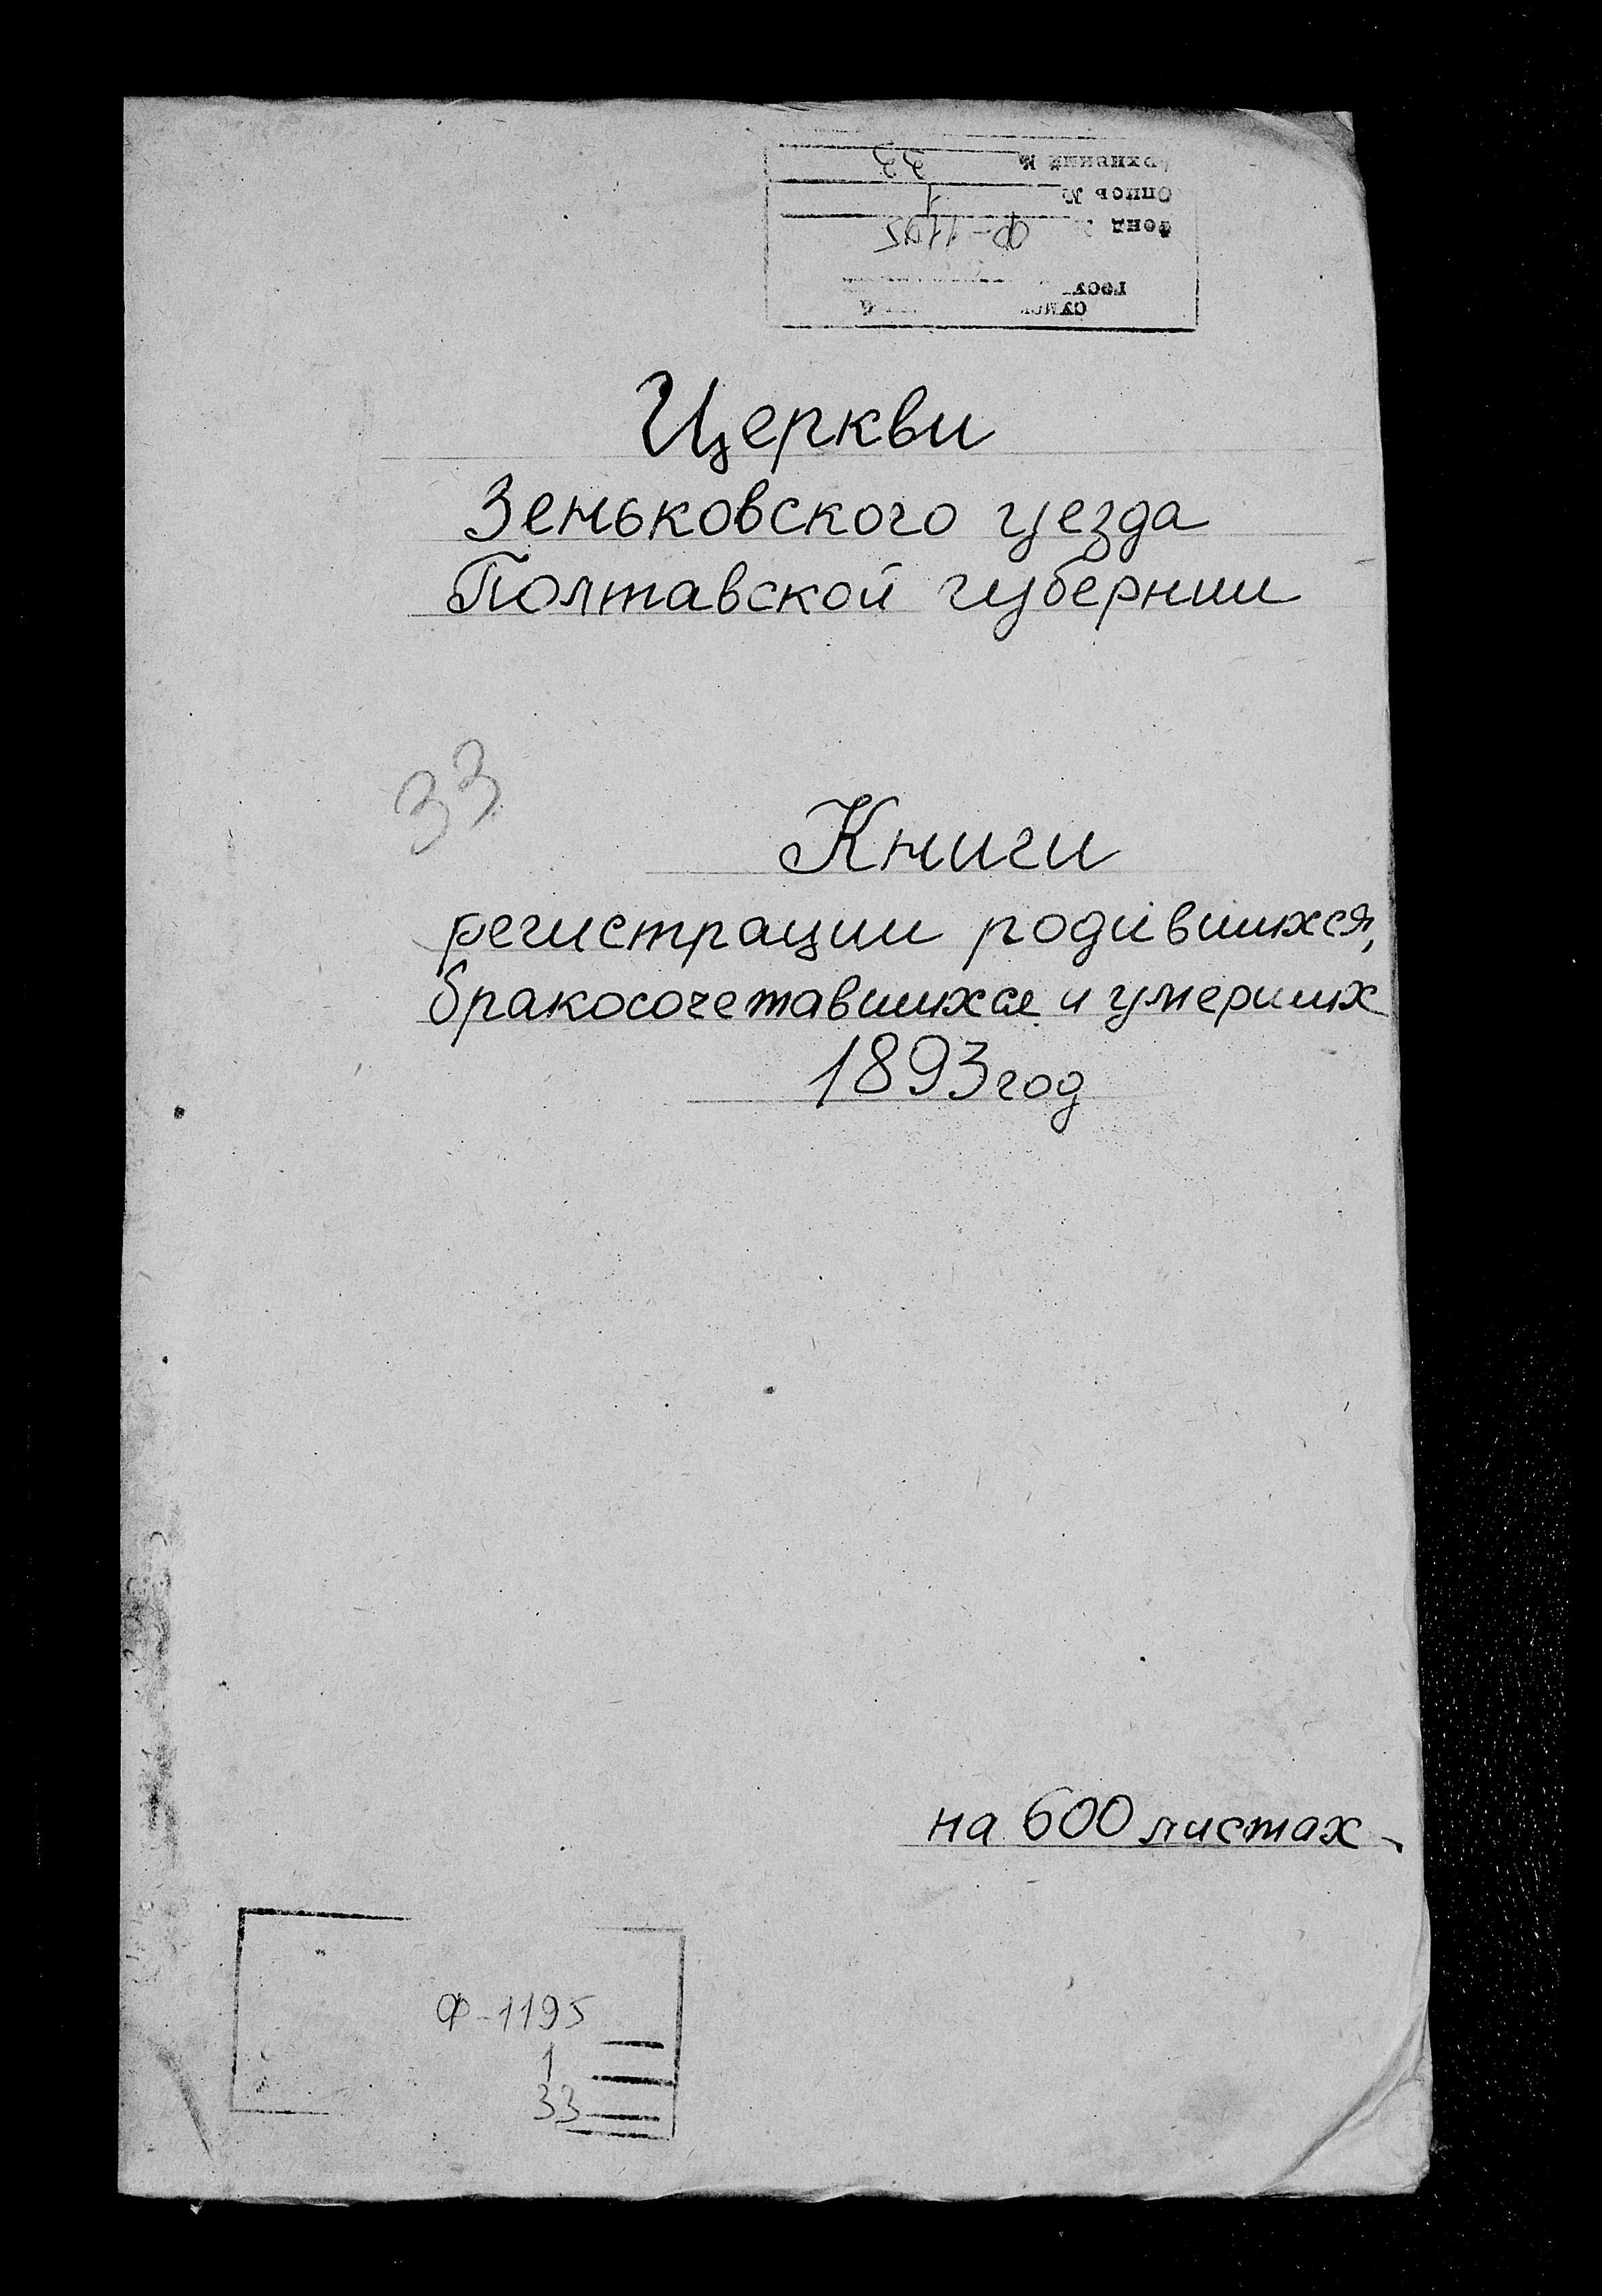 Архивный № 33
Опись № 1
Фонд № Ф-1195
Церкви
Зеньковского уезда
Полтавской губернии
33
Книги
регистрации родившихся,
бракосочетавшихся и умерших
1893 год
на 600 листах
Ф-1195
1
33